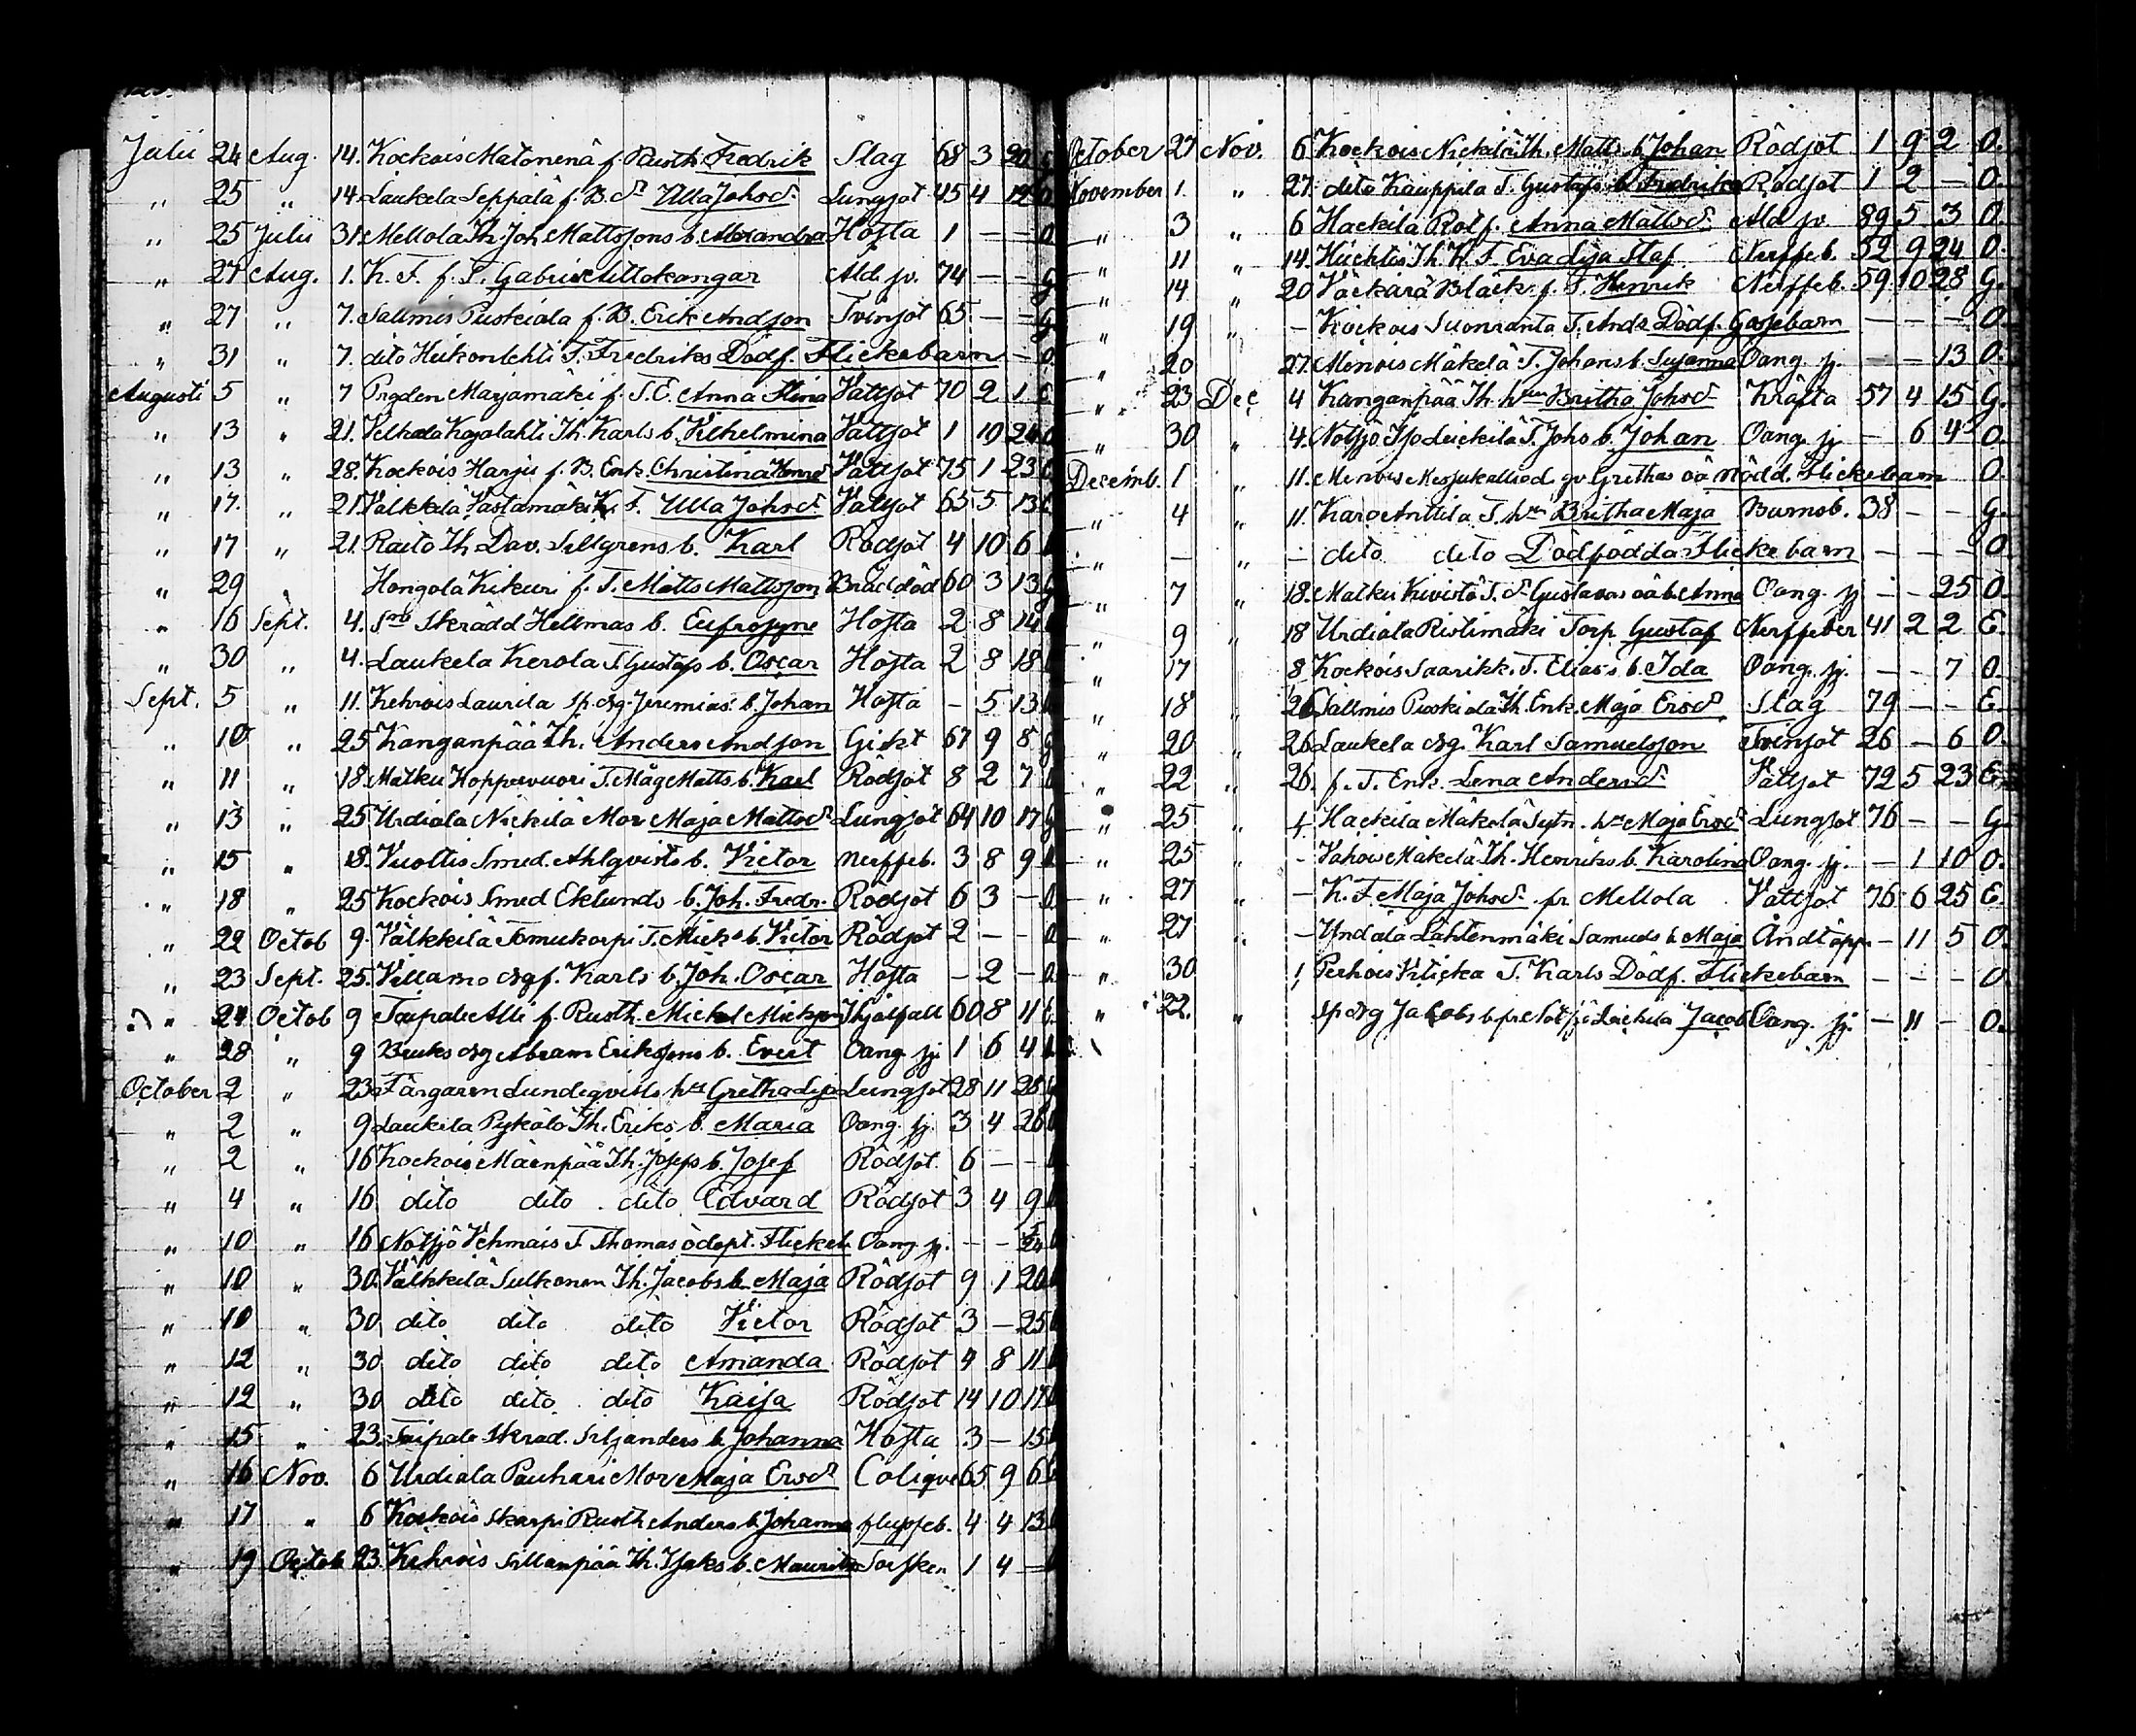 Julii 24 Aug. 14. Kockois Matonenä f. Rusth. Fredrik Slag 68 3 20
" 25 " 14 Laukela Seppälä f. B. dr Ulla Johsdr Lungsot 45 4 12 O
" 25 Julii 31. Mellola Th. Joh. Mattssons b. Alexandra Hosta 1 — — O
" 27 Aug. 1. K. F. f. S. Gabriel Attokangar Ald. sv. 74 — — G
" 27 " 7. Sallmis Puskiala f. B. Erik Andson Tvinsot 65 — — G
" 31 " 7. dito Heikonlehti T. Fredriks Dödf. Flickebarn — O
Augusti 5 " 7 Prgden Marjamäki f. T. E. Anna Stina Vattsot 70 2 1 E
" 13 " 21. Velkala Kogalahti Th. Karls b. Vilhelmina Vattsot 1 10 24 O
" 13 " 28. Kockois Harju f. B. Enk. Christina Henrd Vattsot 75 1 23 E
" 17. " 21. Välkkilä Västamäki K. F. Ulla Johsdr Vattsot 65 5 13
" 17 " 21. Raito Th. Dav. Sellgrens b. Karl Rödsot 4 10 6
" 29 " Hongola Kikuri f. T. Matts Mattsson Bråddöd 60 3 13 G
" 16 Sept. 4. Snb Skrädd Hellmas b. Eufrosyne Hosta 2 8 14
" 30 " 4. Laukela Kerola T. Gustafs b. Oscar Hosta 2 8 18
Sept. 5 " 11. Kehrois Laurila sp. drg. Jeremias b. Johan Hosta — 5 13
" 10 " 25 Kanganpää Th. Anders Andson Gikt 67 9 8 G
" 11 " 18. Matku Hoppervuori T. Måg Matts b. Karl Rödsot 8 2 7
" 13 " 25 Urdiala Nickilä Mor Maja Mattsdr Lungsot 64 10 17 G
" 15 " 18. Vuoltis Smed. Ahlqvists b. Victor Nerffeb. 3 8 9
" 18 " 25 Kockois Smed Eklunds b. Joh. Fredr. Rödsot 6 3 — O.
" 22 Octob 9. Välkkilä Tomukorpi T. Micks b. Victor Rödsot 2 — — O
" 23 Sept. 25. Vellamo drgf. Karls b. Joh. Oscar Hosta — 2 — O.
" 24 Octob 9 Taipale Alli f. Rusth. Michel Mickson Ihjälfall 60 8 11
" 28 " 9 Bruks drg Abram Erikssons b. Evert Oang. sj. 1 6 4
October 2 " 23. Färgaren Lundeqvists hu Gretha Lisa Lungsot 28 11 28
" 2 " 9 Laukila Pykälä Th. Eriks b. Maria Oang. sj. 3 4 26
" 2 " 16 Kockois Mäenpää Th. Josefs b. Josef Rödsot. 6 — —
" 4 " 16 dito dito dito Edvard Rödsot 3 4 9
" 10 " 16 Notsjö Vehmais T. Thomas odöpt. Flickeb. Oang. sj. — —
" 10 " 30. Välkkilä Sulkonen Th. Jacobs b. Maja Rödsot 9 1 20
" 10 " 30 dito dito dito Victor Rödsot 3 — 25
" 12 " 30 dito dito dito Amanda Rödsot 4 8 11
" 12 " 30 dito dito dito Kaisa Rödsot 14 10 17
" 15 " 23. Taipale Skräd. Siljanders b. Johanna Hosta 3 — 15
" 16 Nov. 6 Urdiala Pauhari Mor Maja Ersdr Colique 65 9 6
" 17 " 6 Kockois Skarpi Rusth. Anders b. Johanna 4 4 13
" 19 Octob 23. Kehrois Sillanpää Th. Isaks b. Mauritz Torsken 1 4 —
October 27 Nov. 6 Kockois Nickilä Th. Matts b. Johan Rödsot 1 9 2 O.
November 1. " 27. dito Kauppila T. Gustafs b. Fredrika Rödsot 1 2 — O.
" 3 " 6 Hackila Rotf. Anna Mattsdr Ald. sv. 89 5 3 O.
" 11 " 14. Huchtis Th. K. F. Eva Lisa Staf Nerffeb. 52 9 24 O.
" 14 " 20 Väckärä Bläck f. T. Henrik Nerffeb. 59 10 28 G.
" 19 " — Kockois Suonranta T. Ands Dödf. Gossebarn — — — O.
" 20 " 27. Menois Mäkelä T. Johans b. Susanna Oang. sj. — — 13 O.
" 23 Dec 4 Kanganpää Th. hun Britha Johsdr Kräfta 57 4 15 G.
" 30 " 4. Notsjö Iso Luickila T. Johs b. Johan Oang. sj — 6 4 O.
Decemb. 1 " 11. Menois Mesjukallio d. gv Grethas oä nödd. Flickebarn O.
" 4 " 11. Karo Anttila T. hun Britha Maja Barnsb. 38 — — G.
" — " — dito dito Dödfödda Flickebarn — — — O.
" 7 " 18. Matku Kivistö T. dr Gustavas oä b. Anna Oang. sj — — 25 O.
" 9 " 18 Urdiala Ristimäki Torp. Gustaf Nerffeber 41 2 2 E.
" 17 " 8 Kockois Saarikk. T. Elias's b. Ida Oang. sj. — — 7 O.
" 18 " 26 Sallmis Puskiala Th. Enk. Maja Ersdr Slag 79 — — E
" 20 " 26 Laukela drg. Karl Samuelsson Tvinsot 26 — 6 O.
" 22 " 26. f. T. Enk. Lena Andersdr Vattsot 72 5 23 E
" 25 " 1. Hackila Mäkelä Sytn. hu Maja Ersdr Lungsot 76 — — G.
" 25 " — Vahois Mäkelä Th. Henriks b. Karolina Oang. sj. — 1 10 O.
" 27 " — K. F. Maja Johsdr fr. Mellola Vattsot 76 6 25 E.
" 27 " — Urdiala Lahtenmäki Samuels b. Maja Andtäpp. — 11 5 O.
" 30 1 Perhois Klicka T. Karls Dödf. Flickebarn — — — O.
" 22. " sp drg Jacobs b. fr. Notsjö Luickila Jacob Oang. sj. — 11 — O.